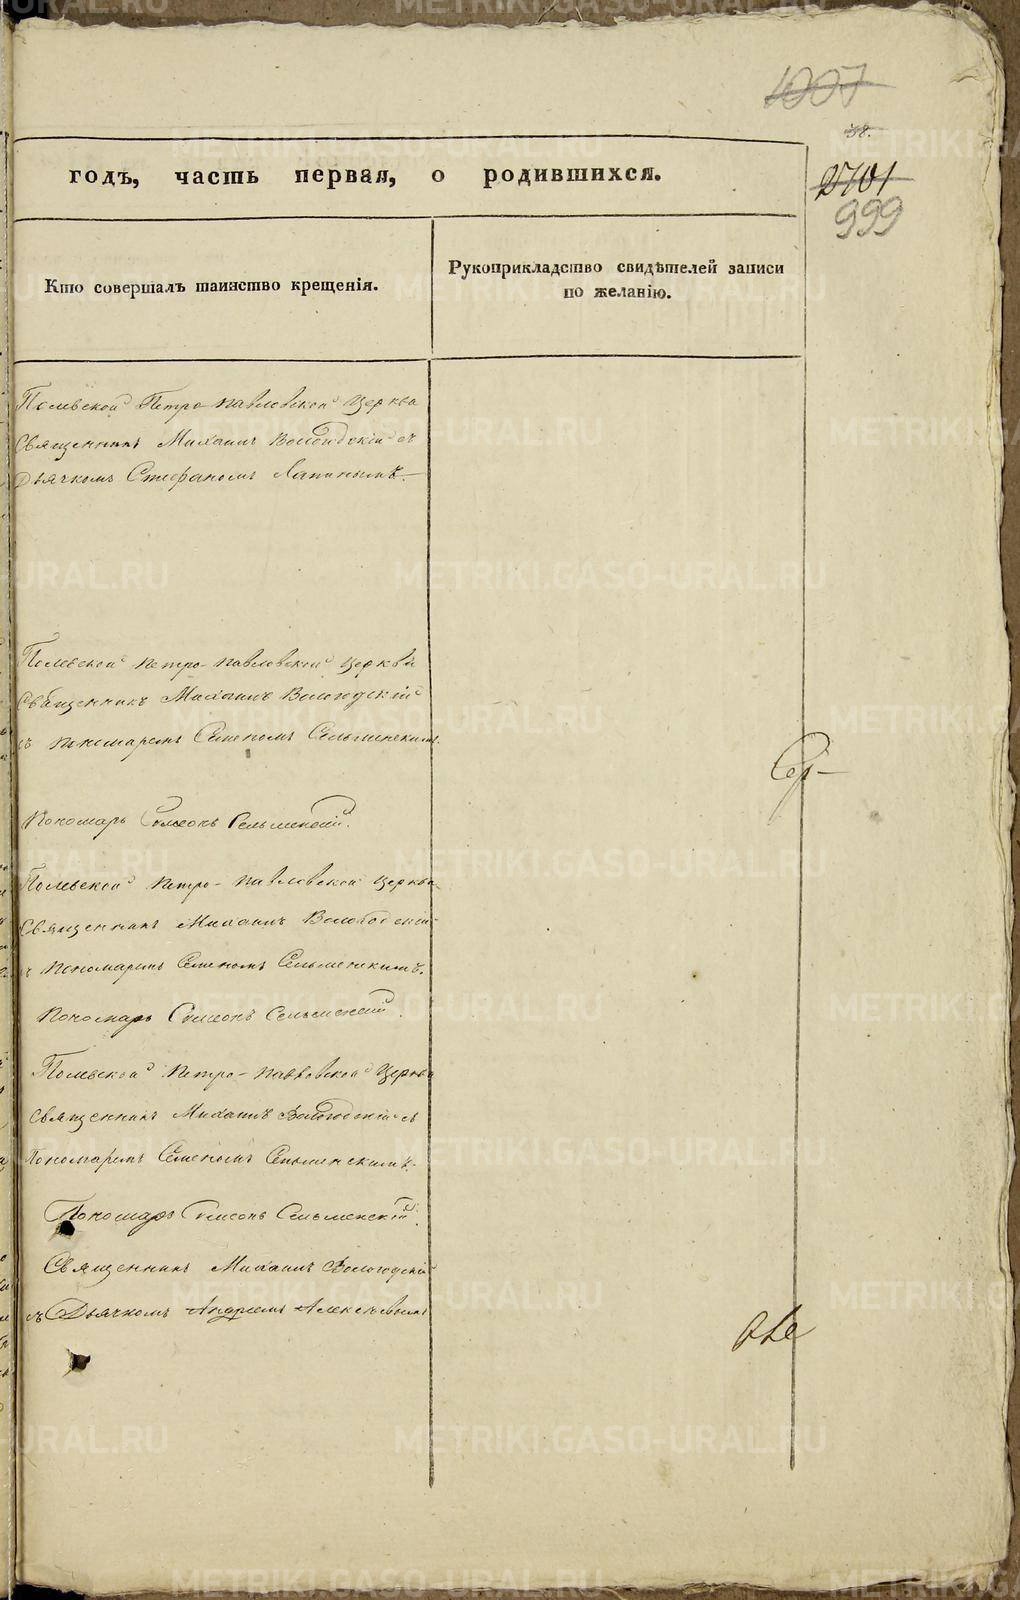 1007
58.
годъ, часть первая, о родившихся.
2701
999
Кто совершалъ таинство крещенія.
Рукоприкладство свидѣтелей записи
по желанію.
Полевской Петро-павловской Церкви
Священникъ Михаилъ Вологодскій съ
Дьячкомъ Стефаномъ Лапинымъ.
Полевской Петро-павловской Церкви
Священникъ Михаилъ Вологодскій
съ пономаремъ Семеномъ Сельменскимъ.
Сер-
Пономарь Симеонъ Сельменскій.
Полевской Петро-павловской Церкви
Священникъ Михаилъ Вологодскій
съ Пономаремъ Семеномъ Сельменскимъ.
Пономарь Симеонъ Сельменскій.
Полевской Петро-павловской Церкви
Священникъ Михаилъ Вологодскій съ
Пономаремъ Семеномъ Сельменскимъ.
Пономарь Симеонъ Сельменскій.
Священникъ Михаилъ Вологодскій
съ Дьячкомъ Андреемъ Алексѣевымъ
METRIKI.GASO-URAL.RU